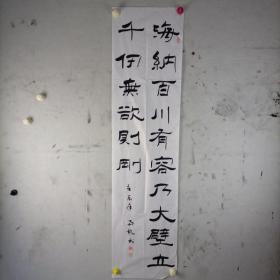 海納百川有容乃大壁立
千仞無欲則剛